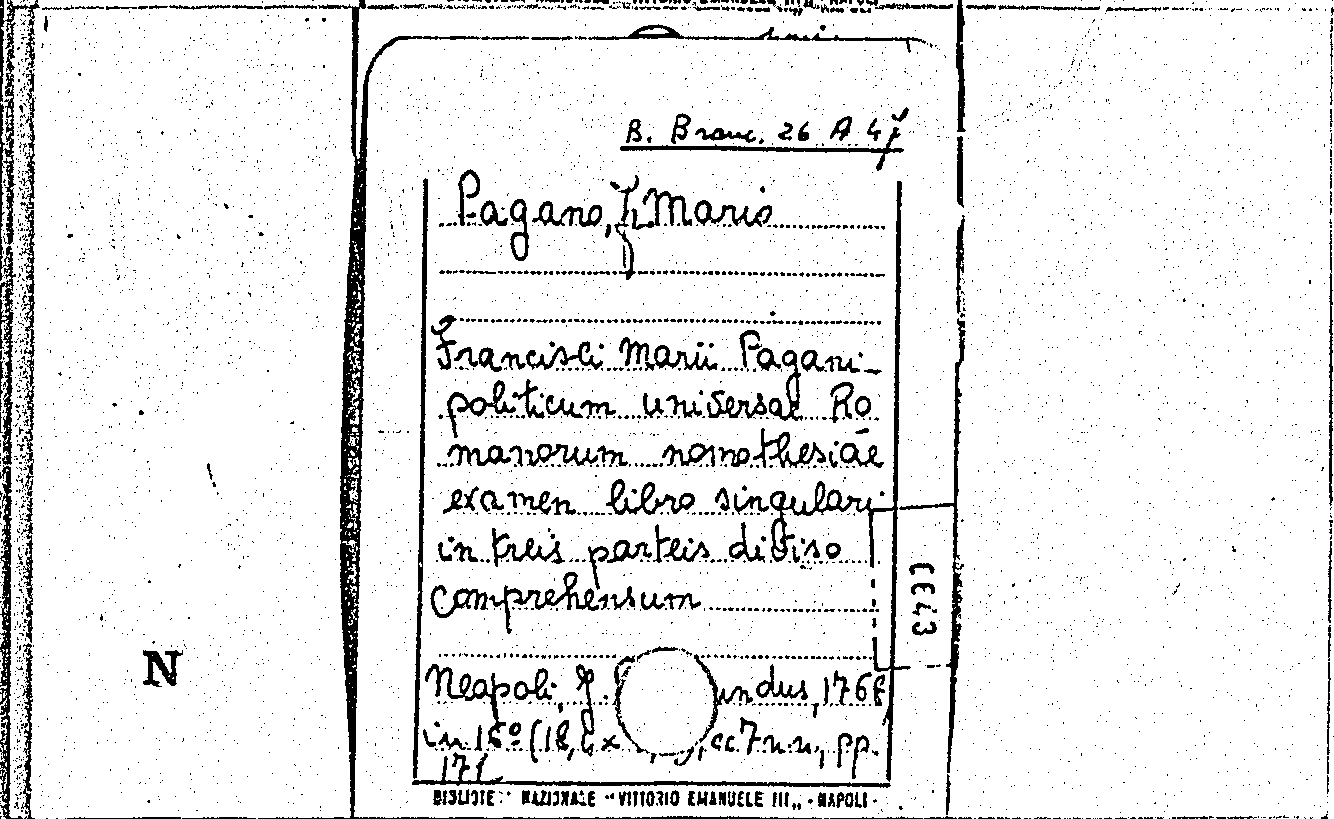 B. Branc. 26 A 47
Pagano, F. Mario
Francisci Marii Pagani
politicum universae Ro
manorum nomothesiae
examen libro singulari
in treis parteis diviso
comprehensum
Neapoli, undus, 1768
in 16º (18, cc 7 n.n., pp.
171
BIBLIOTE NAZIONALE "VITTORIO EMANUELE III" - NAPOLI
N